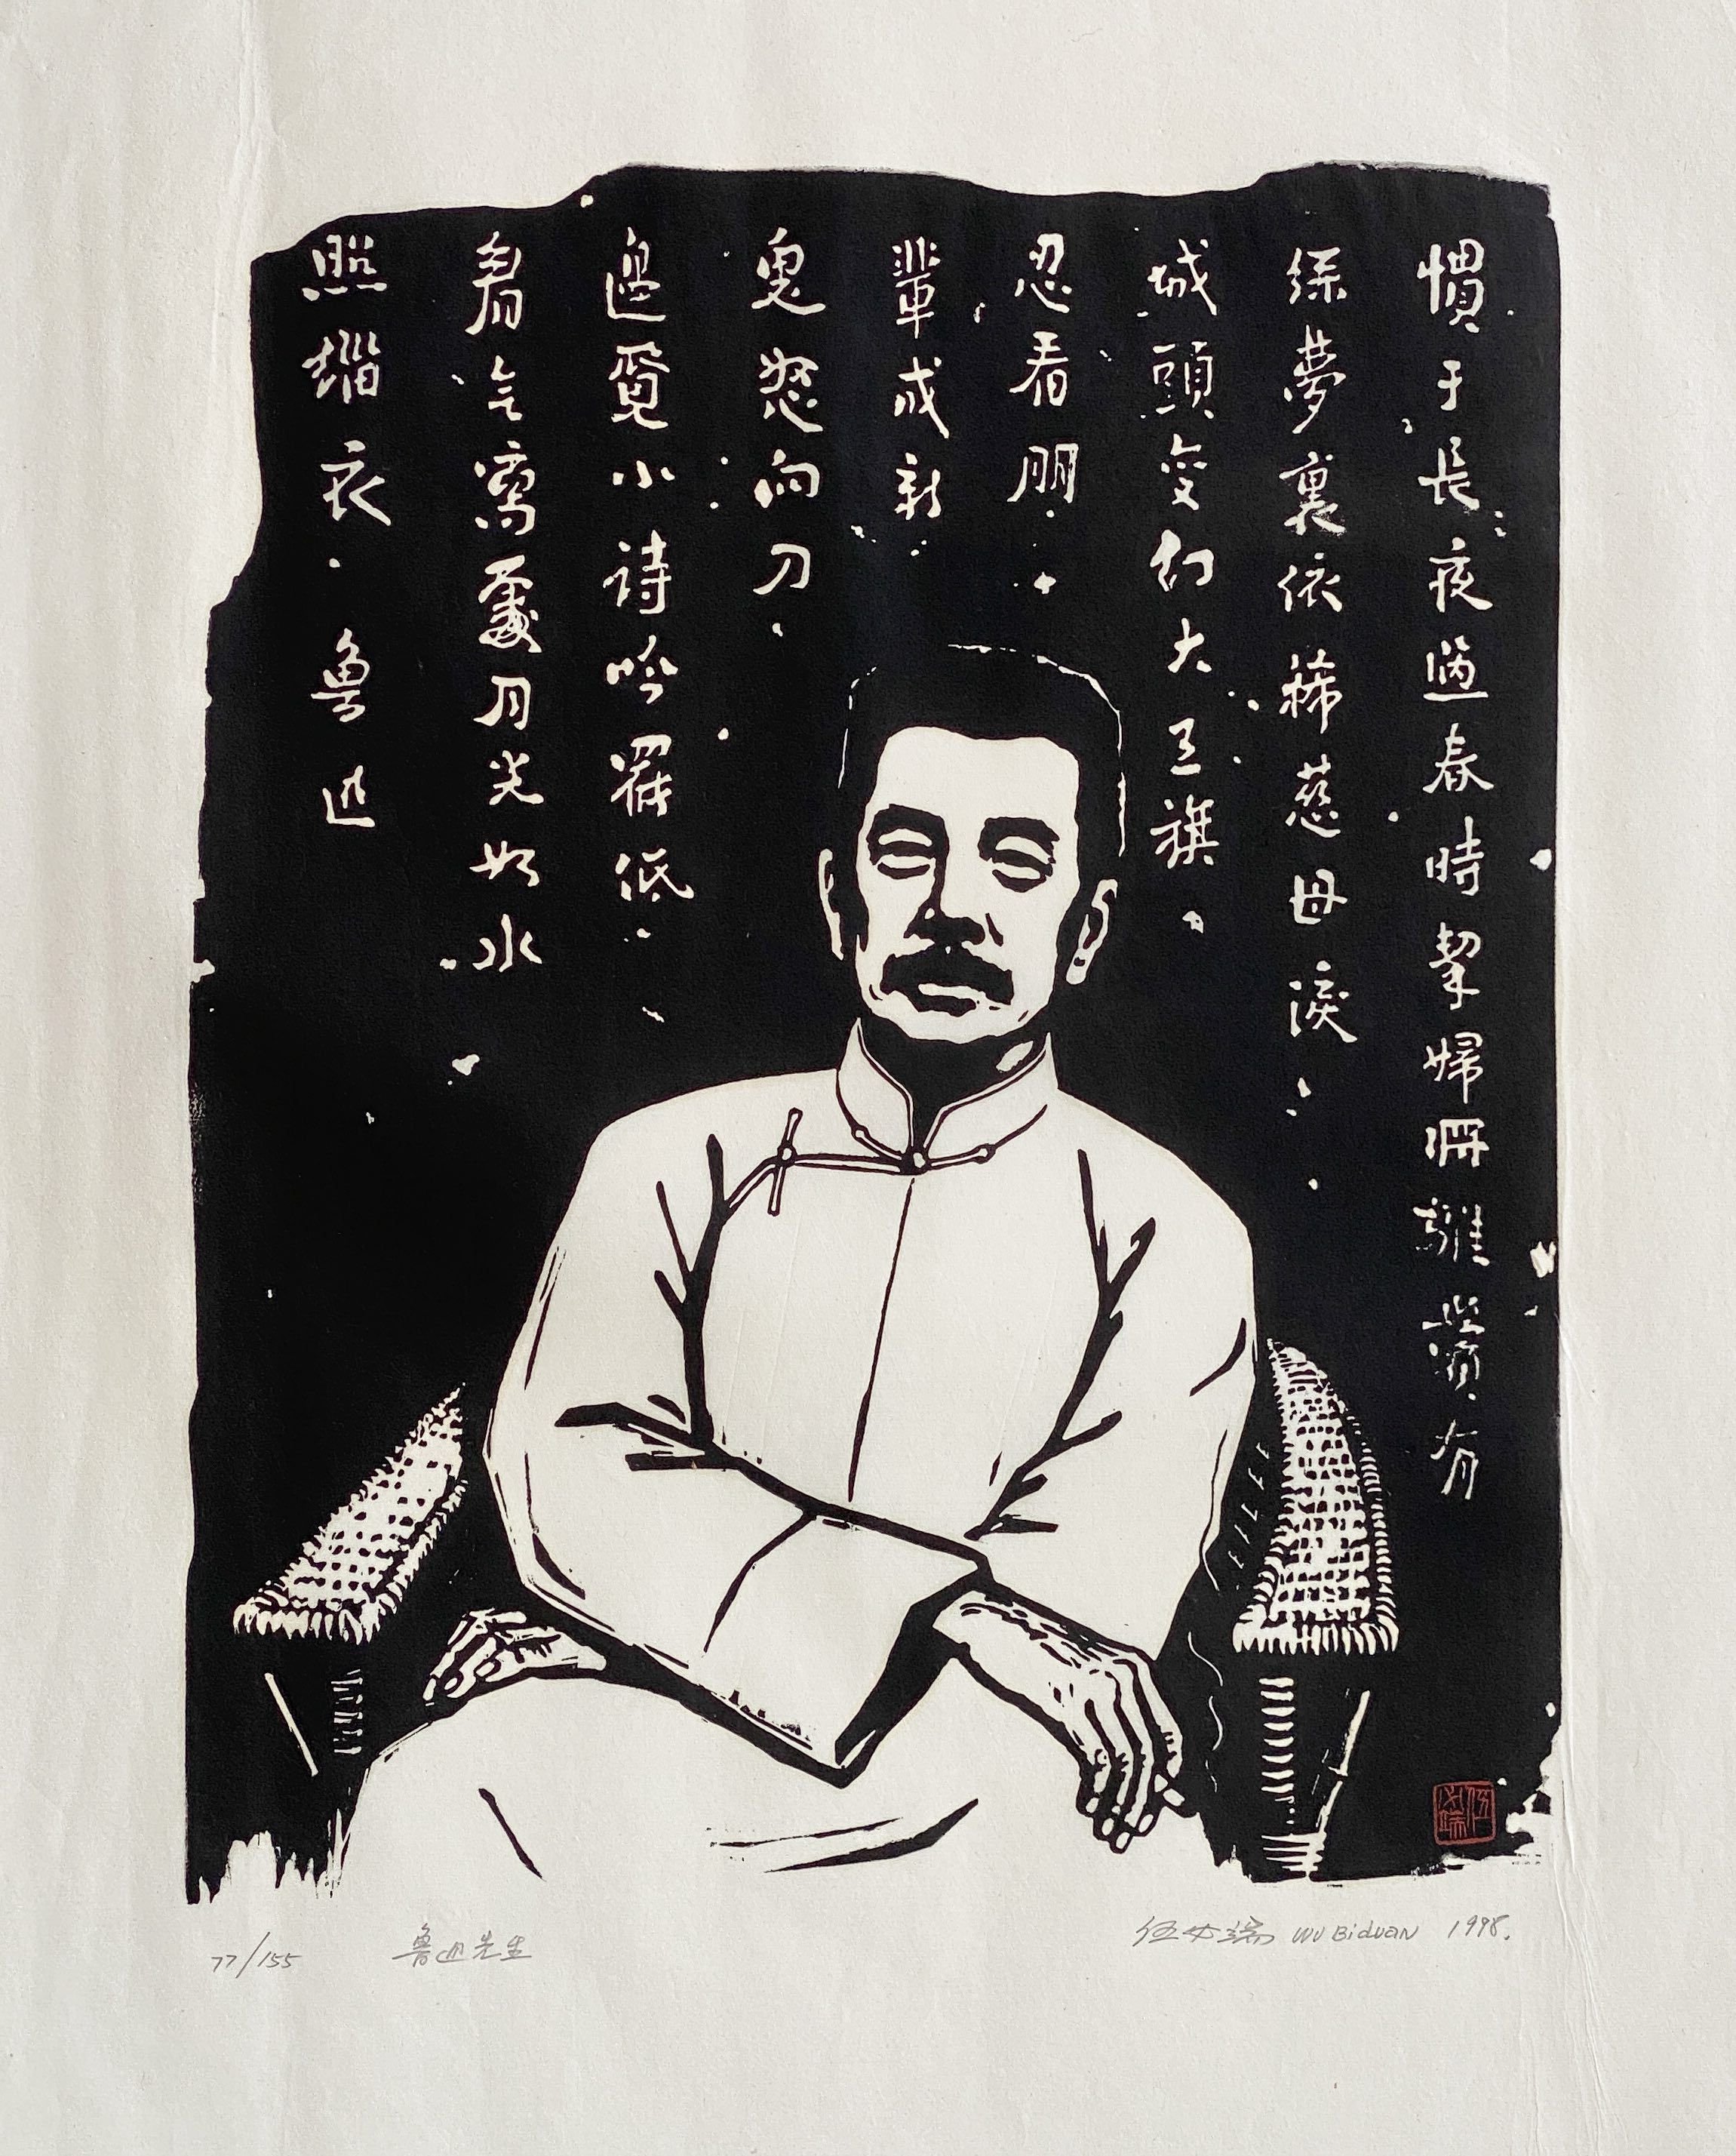 慣于長夜過春時挈婦將雛鬢有
絲夢裏依稀慈母淚
城頭變幻大王旗
忍看朋
輩成新
鬼怒向刀
邊覓小詩吟罷低
眉無寫處月光如水
照緇衣 魯迅
伍必端
77/155 魯迅先生 伍必端 WU BiDUAN 1998.